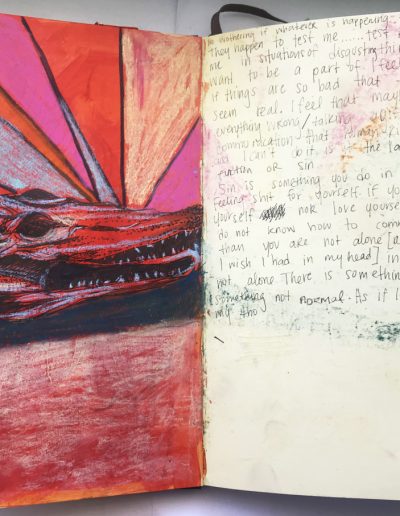 wothering if whatever is happening
they happen to test me......test
me in situations of disgusting thi
want to be a part of I feel
if things are so bad that
seem real. I feel that mayb
everything wrong/talking
communication that
and I can't do it is the la
or sin
Sin is something you do in
feeling shit for yourself if yo
yourself nor love yourse
do not know how to comm
than you are not alone [a
I wish I had in my head] in
not alone. There is somethin
something not normal. As if I
my tho